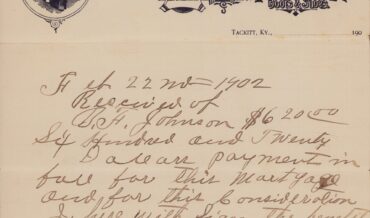 TACKITT, KY., 190
Feb 22nd = 1902
Received of
T. F. Johnson $620.00
Six Hundred and Twenty
Dolears payment in
full for this Mortgage
and for this Consideration
I here with